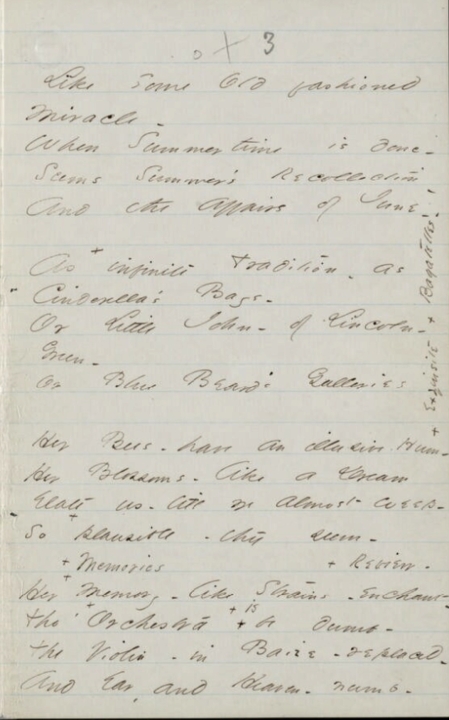 o + 3
Like Some Old fashioned
Miracle -
When Summertime is done -
Seems Summer's Recollection
And the Affairs of June -
As + infinite Tradition - as
Cinderella's Bays -
Or Little John - of Lincoln -
Green -
Or Blue Beard's Galleries -
+ Exquisite + Bagatelles -
Her Bees - have an illusive Hum -
Her Blossoms - like a Dream
Elate us - till we almost weep -
So + plausible - they seem -
+ Memories + Review -
Her + Memory - like Strains - enchant -
Tho' + Orchestra + is + be dumb -
The Violin - in Baize - replaced -
And Ear, and Heaven - numb -